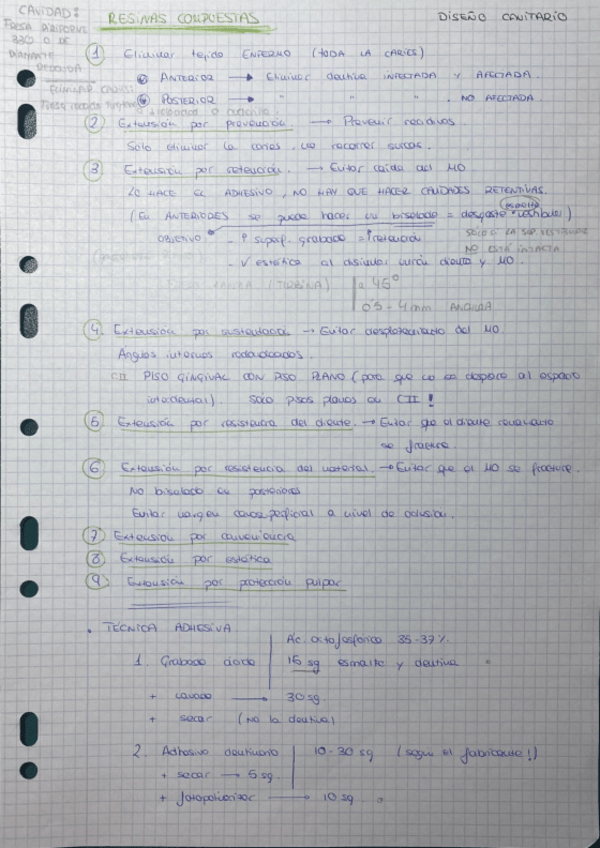 CAVIDAD:
RESINAS COMPUESTAS
DISEÑO CAVITARIO
FRESA
330 O DE
DIAMANTE
REDONDA
ELIMINAR CARIES:
Fresa redonda
1 Eliminar tejido ENFERMO (TODA LA CARIES)
ANTERIOR → Eliminar dentina INFECTADA Y AFECTADA.
POSTERIOR → " " " . NO AFECTADA
2 Extensión por prevención. → Prevenir recidivas.
Sólo eliminar la caries, no recorrer surcos.
3 Extensión por retención. → Evitar caída del MO
LO HACE EL ADHESIVO, NO HAY QUE HACER CAVIDADES RETENTIVAS.
(En ANTERIORES se puede hacer un biselado = desgaste esmalte vestibular)
OBJETIVO - ↑ superf. grabado = ↑retención
SÓLO SI LA SUP. VESTIBULAR
NO ESTÁ INTACTA
- ✓ estética al disimular unión diente y MO.
(TURBINA)
a 45°
0'5 - 4 mm ANCHURA
4. Extensión por sustentación → Evitar desplazamiento del MO.
Ángulos internos redondeados.
CII PISO GINGIVAL CON PISO PLANO (para que no se desplace al espacio
interdental). Sólo pisos planos en CII !
5 Extensión por resistencia del diente. → Evitar que el diente remanente
se fracture.
6 Extensión por resistencia del material. → Evitar que el MO se fracture.
No biselado en posteriores
Evitar margen cavosuperficial a nivel de oclusión.
7 Extensión por conveniencia
8 Extensión por estética
9 Extensión por protección pulpar
• TÉCNICA ADHESIVA
Ác. ortofosfórico 35-37%.
1. Grabado ácido 15 sg esmalte y dentina
+ lavado → 30 sg.
+ secar (No la dentina)
2. Adhesivo dentinario 10-30 sg (según el fabricante!)
+ secar → 5 sg
+ fotopolimerizar → 10 sg.